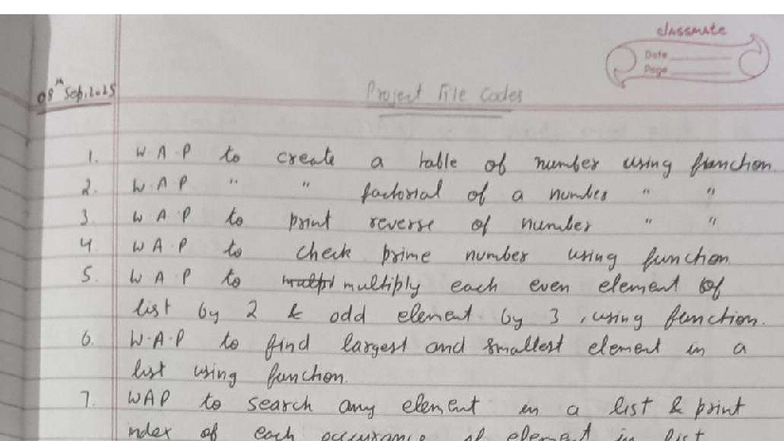 classmate
Date
Page
08th Sep, 2025
Project File Codes
1. W.A.P to create a table of number using function
2. W.A.P " " factorial of a number " "
3 W A P to print reverse of number " "
4 W A P to check prime number using function
5. W A P to multiply each even element of
list by 2 & odd element by 3, using function.
6. W.A.P to find largest and smallest element in a
list using function.
7. WAP to search any element in a list & print
index of each occurance of element in list